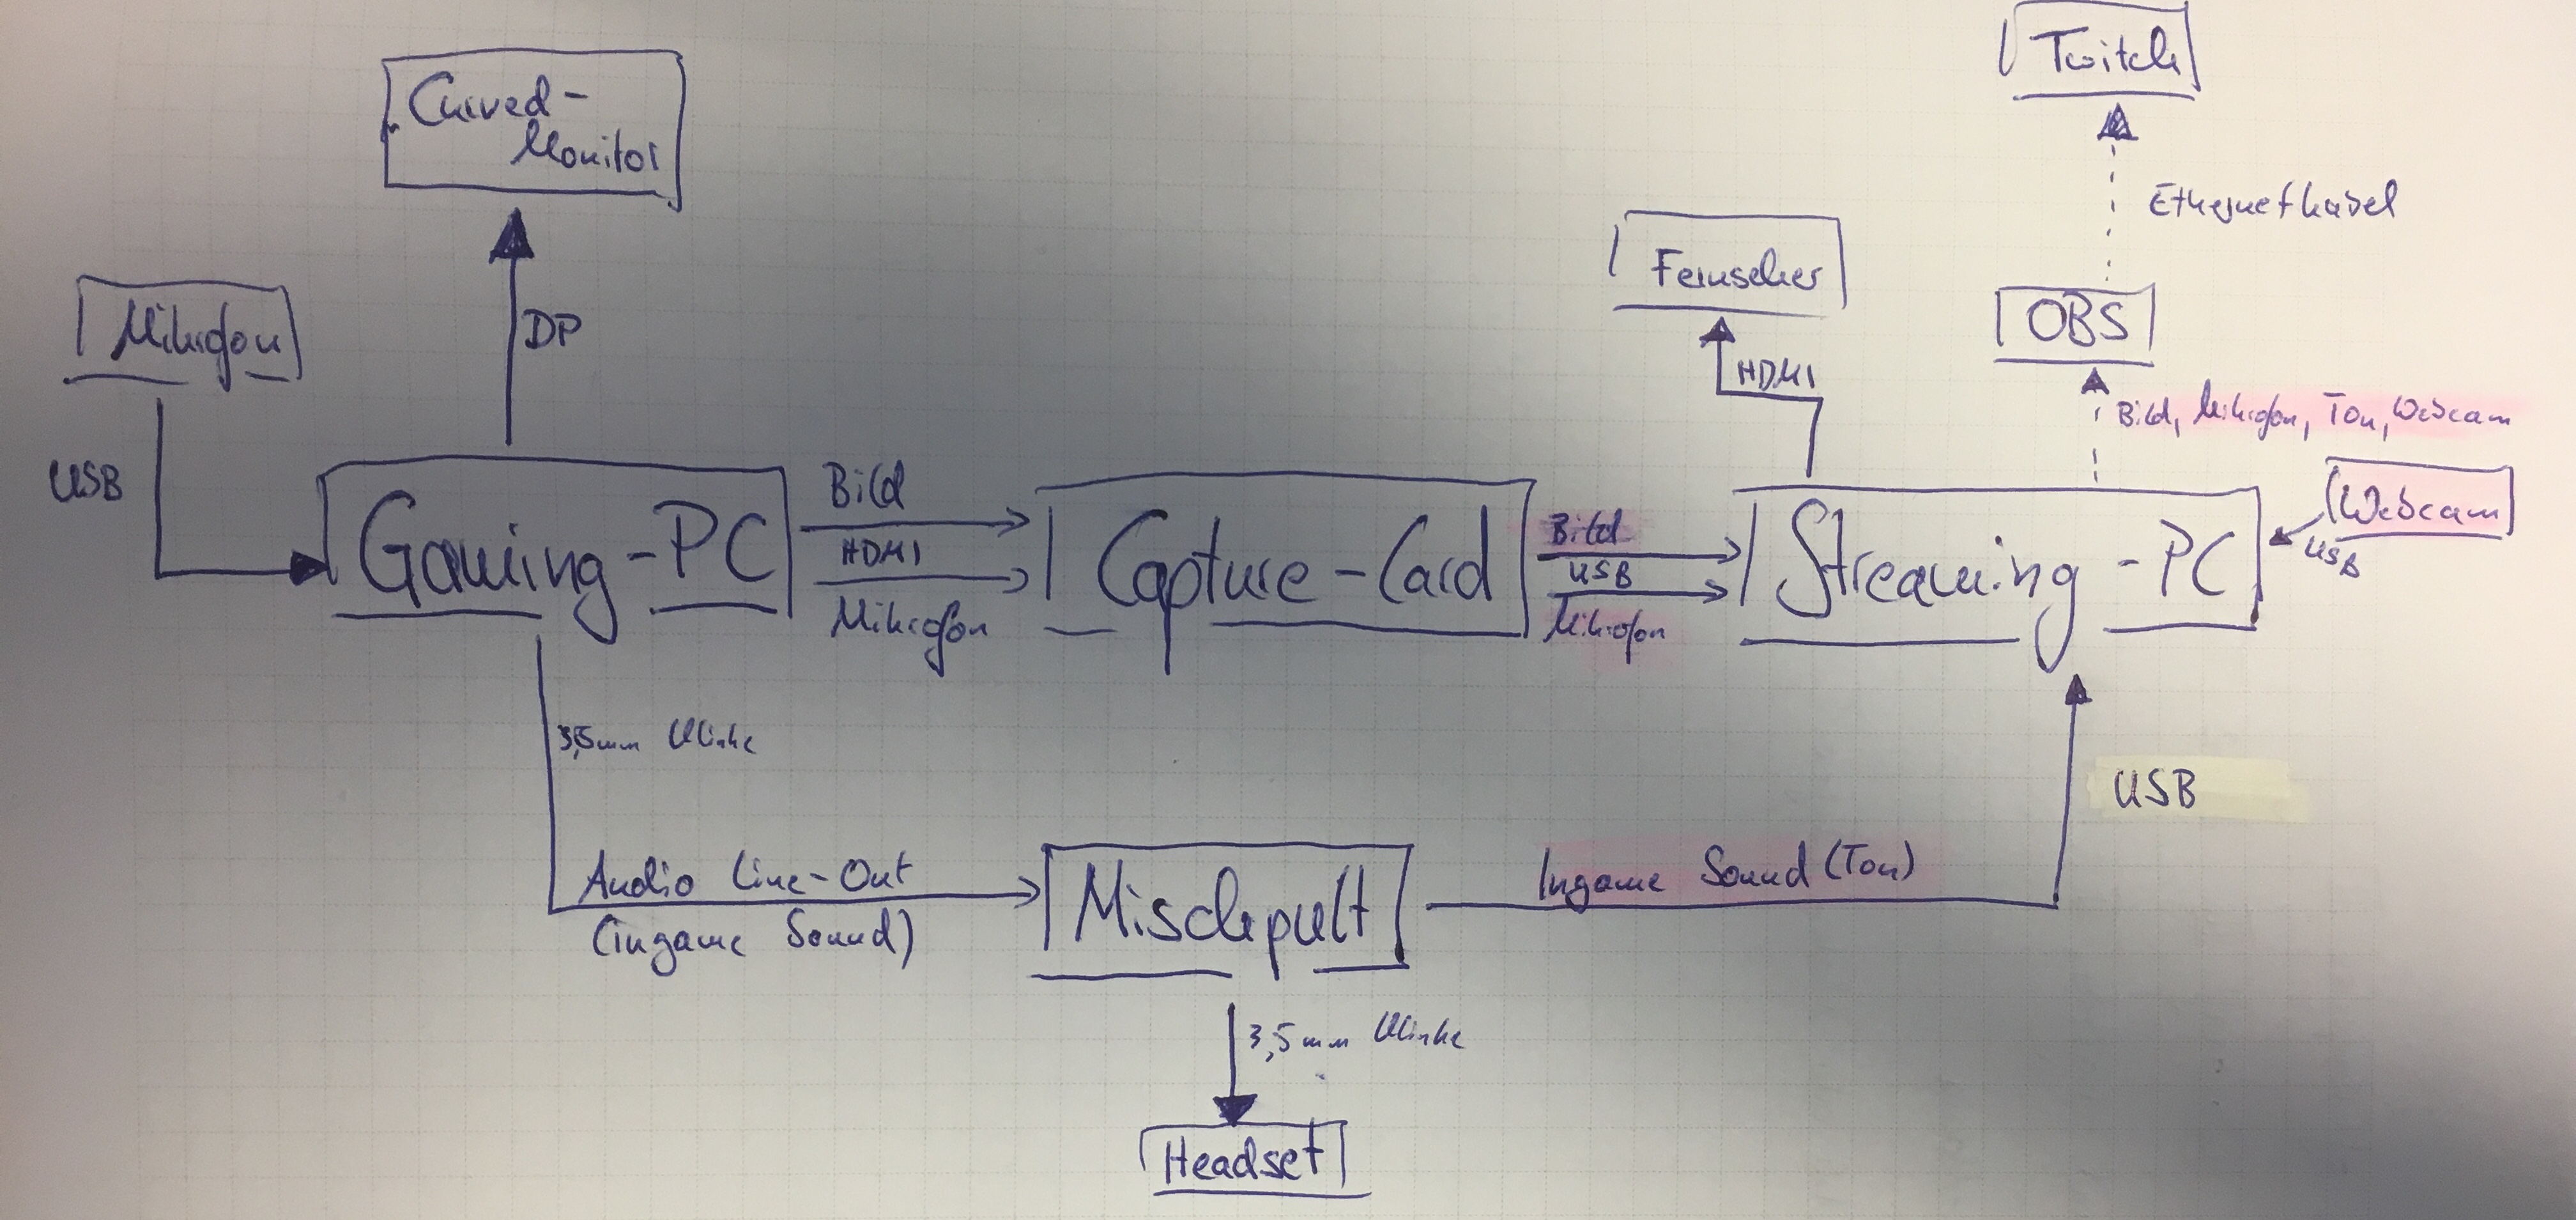 Twitch
Curved-
Monitor
Ethernetkabel
Fernseher
Mikrofon
OBS
DP
HDMI
Bild, Mikrofon, Ton, Webcam
USB
Bild
Webcam
Gaming-PC
HDMI
Capture-Card
Bild
USB
Streaming-PC
USB
Mikrofon
Mikrofon
3,5mm Klinke
USB
Audio Line-Out
(ingame Sound)
Mischpult
Ingame Sound (Ton)
3,5mm Klinke
Headset